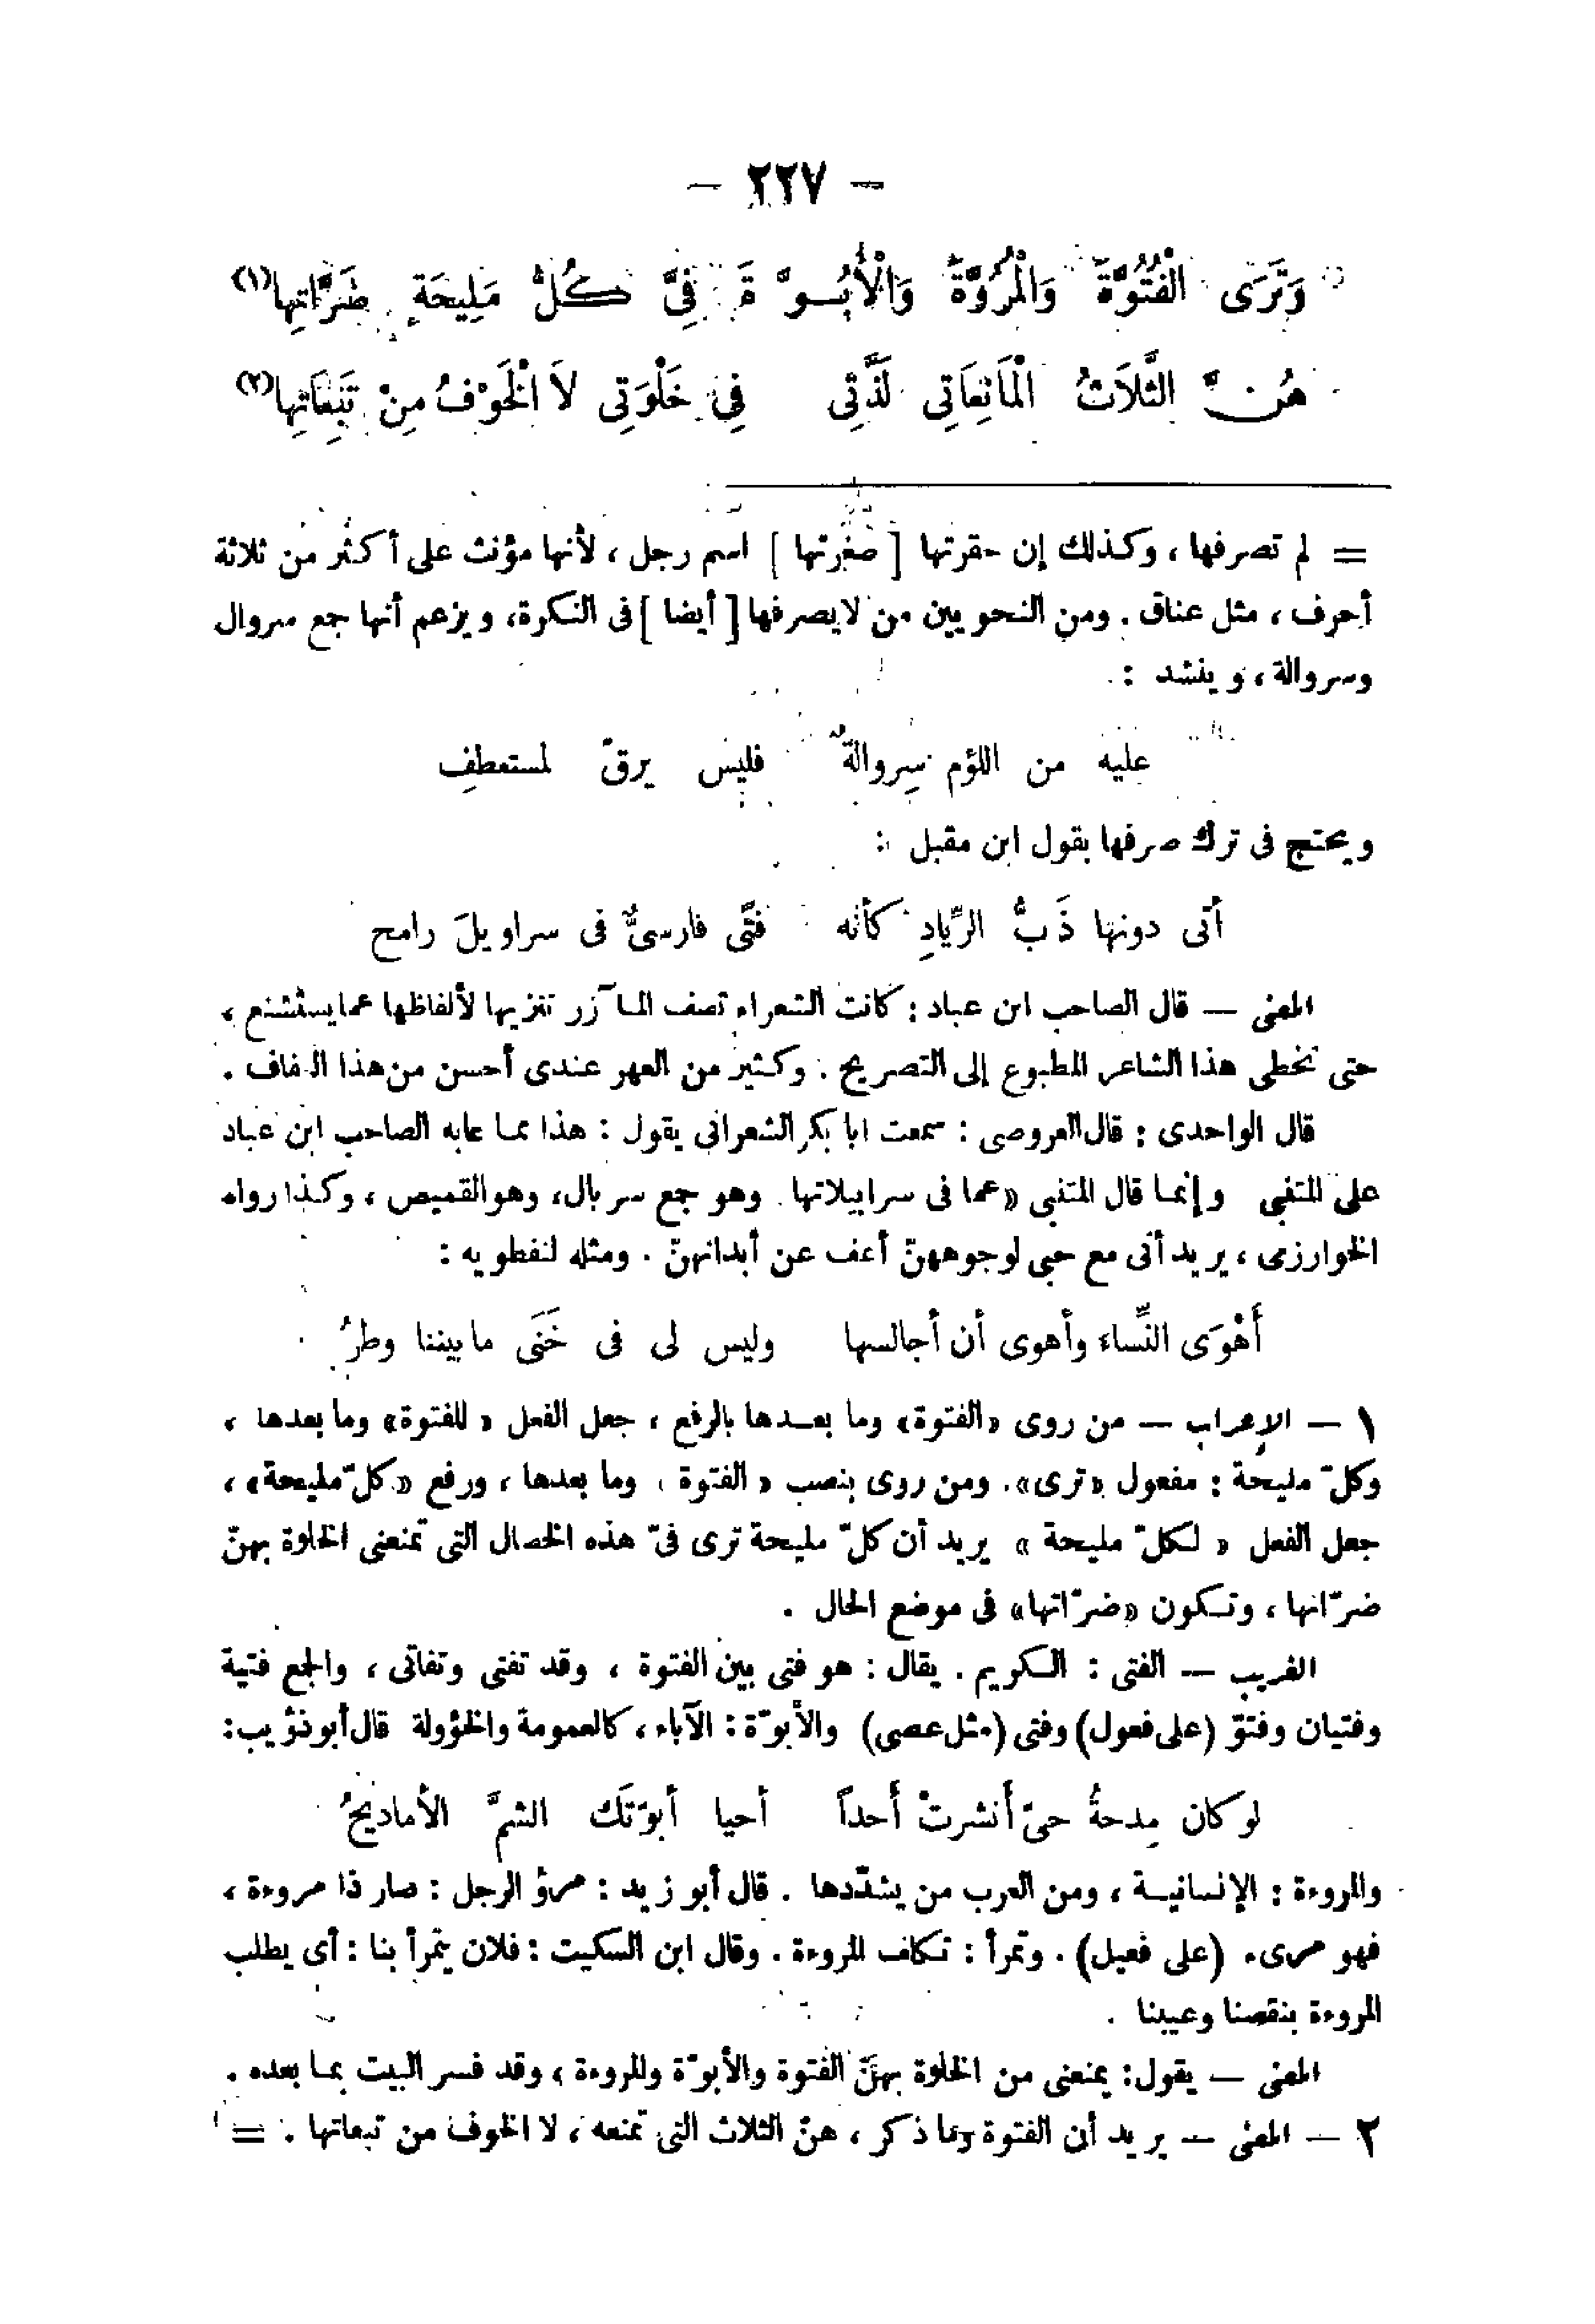 — ٢٢٧ —
وَتَرَى الْفُتُوَّةَ وَالْمُرُوَّةَ وَالْأُبُـــوَّ ةَ فِىَّ كُلُّ مَلِيحَةٍ ضَرَّاتِهاَ(١)
هُنَّ الثَّلاَثُ الْمَانِعاَتِى لَذَّتِى فِى خَلْوَتِى لاَ الْخَوْفُ مِنْ تَبِعَاتِهاَ(٢)
= لم تصرفها ، وكذلك إن حقرتها [ صغرتها ] اسم رجل ، لأنها مؤنث على أكثر من ثلاثة
أحرف ، مثل عناق . ومن النحويين من لايصرفها [ أيضا ] فى النكرة، ويزعم أنها جمع سروال
وسروالة ، وينشد :
عليه من اللؤم سِروالةٌ فليس يرقّ لمستعطفِ
ويحتج فى ترك صرفها بقول ابن مقبل :
أتى دونها ذَبُّ الرِّيادِ كأنه فتًى فارسىٌّ فى سراويلَ رامح
المعنى — قال الصاحب ابن عباد : كانت الشعراء تصف المآزر تنزيها لألفاظها عما يستشنع ،
حتى تخطى هذا الشاعر المطبوع إلى التصريح : وكثير من العهر عندى أحسن من هذا العفاف .
قال الواحدى : قال العروضى : سمعت ابا بكر الشعرانى يقول : هذا مما عابه الصاحب ابن عباد
على المتنبى وإنما قال المتنبى « عما فى سرابيلاتها . وهو جمع سربال، وهو القميص ، وكذا رواه
الخوارزمى ، يريد أنى مع حبى لوجوههنّ أعف عن أبدانهنّ . ومثله لنفطويه :
أَهْوَى النِّساء وأهوى أن أجالسها وليس لى فى خَنَى ما بيننا وطرُ
١ — الإعراب — من روى «الفتوة» وما بعــدها بالرفع ، جعل الفعل « للفتوة» وما بعدها ،
وكلّ مليحة : مفعول «ترى». ومن روى بنصب « الفتوة ، وما بعدها ، ورفع « كلّ مليحة» ،
جعل الفعل « لكلّ مليحة » يريد أن كلّ مليحة ترى فىّ هذه الخصال التى تمنعنى الخلوة بهنّ
ضرّاتها ، وتكون «ضرّاتها» فى موضع الحال .
الغريب — الفتى : الكريم . يقال : هو فتى بين الفتوة ، وقد تفتى وتفاتى ، والجمع فتية
وفتيان وفتوّ (على فعول) وفتى (مثل عصى) والأبوّة : الآباء ، كالعمومة والخؤولة قال أبو ذؤيب:
لو كان مِدحةُ حىّ أَنشرتْ أَحداً أحيا أبوّتَك الشمَّ الأماديحُ
والمروءة : الإنسانيــة ، ومن العرب من يشدّدها . قال أبو زيد : مرؤ الرجل : صار ذا مروءة ،
فهو مرىء (على فعيل) . وتمرأ : تكلف المروءة . وقال ابن السكيت : فلان يتمرأ بنا : أى يطلب
المروءة بنقصنا وعيبنا .
المعنى — يقول: يمنعنى من الخلوة بهنّ الفتوة والأبوّة والمروءة ، وقد فسر البيت بمـا بعده .
٢ — المعنى — يريد أن الفتوة وما ذكر ، هنّ الثلاث التى تمنعه ، لا الخوف من تبعاتها . =